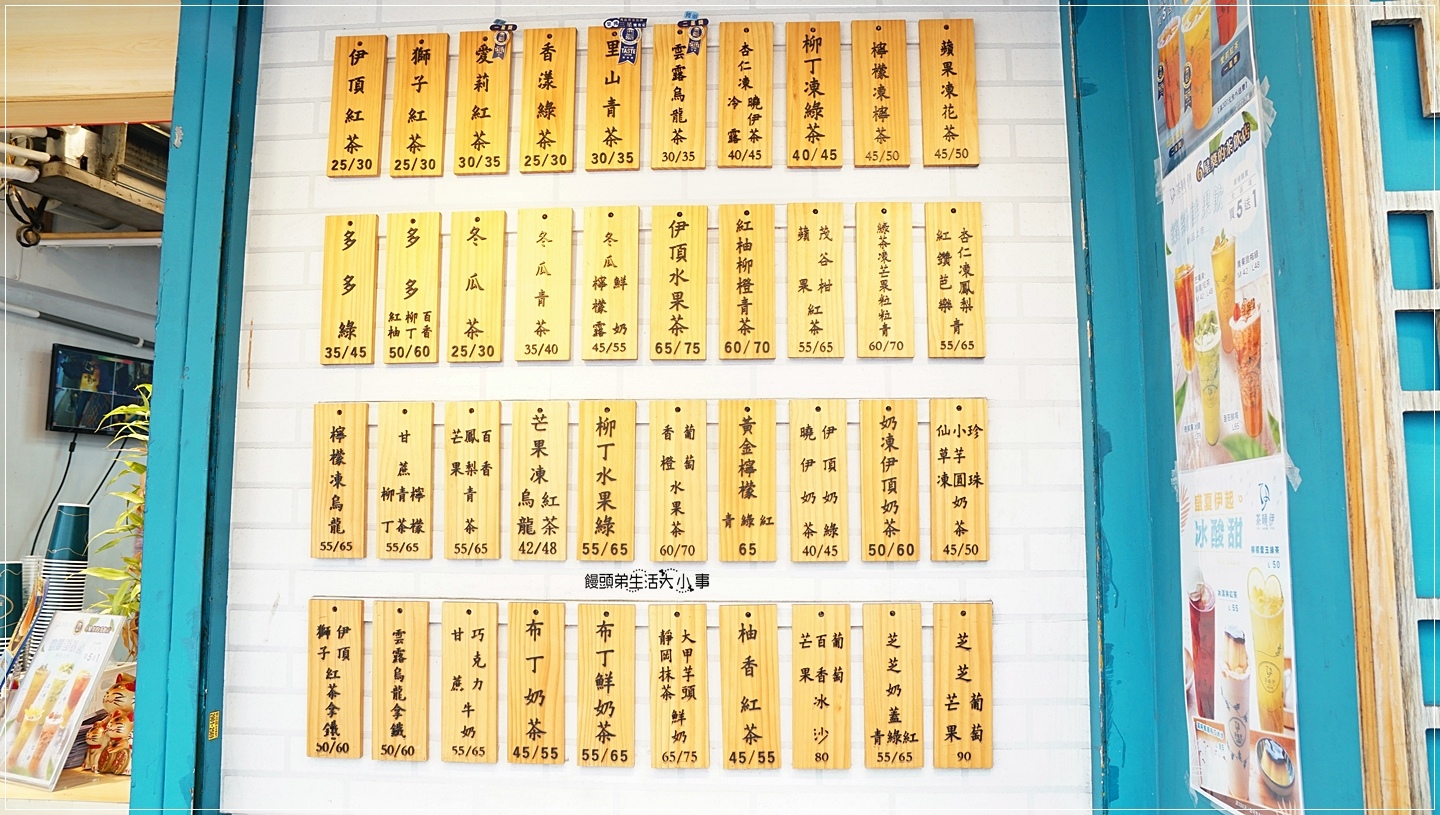 伊頂紅茶
25/30
獅子紅茶
25/30
愛莉紅茶
30/35
香漾綠茶
25/30
里山青茶
30/35
雲露烏龍茶
30/35
杏仁凍
曉伊茶
冷露
40/45
柳丁凍綠茶
40/45
檸檬凍檸茶
45/50
蘋果凍花茶
45/50
多多綠
35/45
多多
紅柚
柳丁
百香
50/60
冬瓜茶
25/30
冬瓜青茶
35/40
冬瓜
檸檬露
鮮奶
45/55
伊頂水果茶
65/75
紅柚柳橙青茶
60/70
蘋果
茂谷柑
紅茶
55/65
綠茶凍芒果粒粒青
60/70
紅鑽芭樂
杏仁凍鳳梨青
55/65
檸檬凍烏龍
55/65
甘蔗
柳丁
青茶
檸檬
55/65
芒果
鳳梨
百香
青茶
55/65
芒果凍
烏龍
紅茶
42/48
柳丁水果綠
55/65
香橙
葡萄
水果茶
60/70
黃金檸檬
青綠紅
65
曉伊奶茶
伊頂奶綠
40/45
奶凍伊頂奶茶
50/60
仙草凍
小芋圓
珍珠
奶茶
45/50
獅子
伊頂
紅茶拿鐵
50/60
雲露烏龍拿鐵
50/60
甘蔗
巧克力
牛奶
55/65
布丁奶茶
45/55
布丁鮮奶茶
55/65
靜岡抹茶
大甲芋頭
鮮奶
65/75
柚香紅茶
45/55
芒果
百香
葡萄
冰沙
80
芝芝奶蓋
青綠紅
55/65
芝芝
芒果
葡萄
90
饅頭弟生活大小事
買5送1
盛夏伊起。
冰酸甜
茶曉伊
L 50
L 55